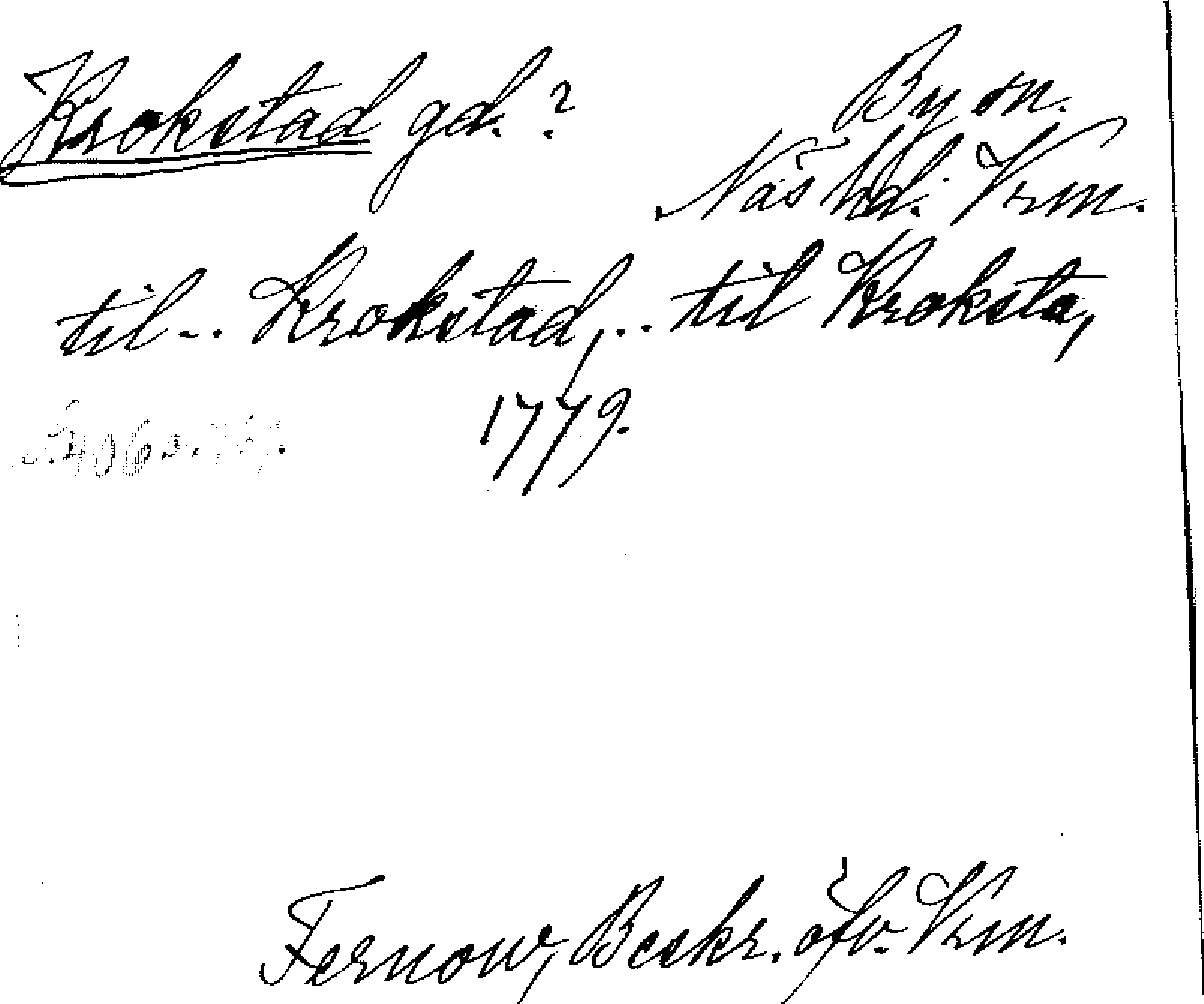 Krokstad gd.?
By sn.
Näs hd. Vrm.
til .. Krokstad, .. til Kroksta,
1779.
Fernow, Beskr. öfv. Vrm.